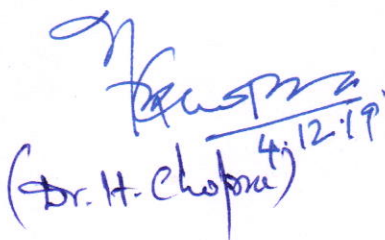 4.12.19
(Dr. H. Chopra)